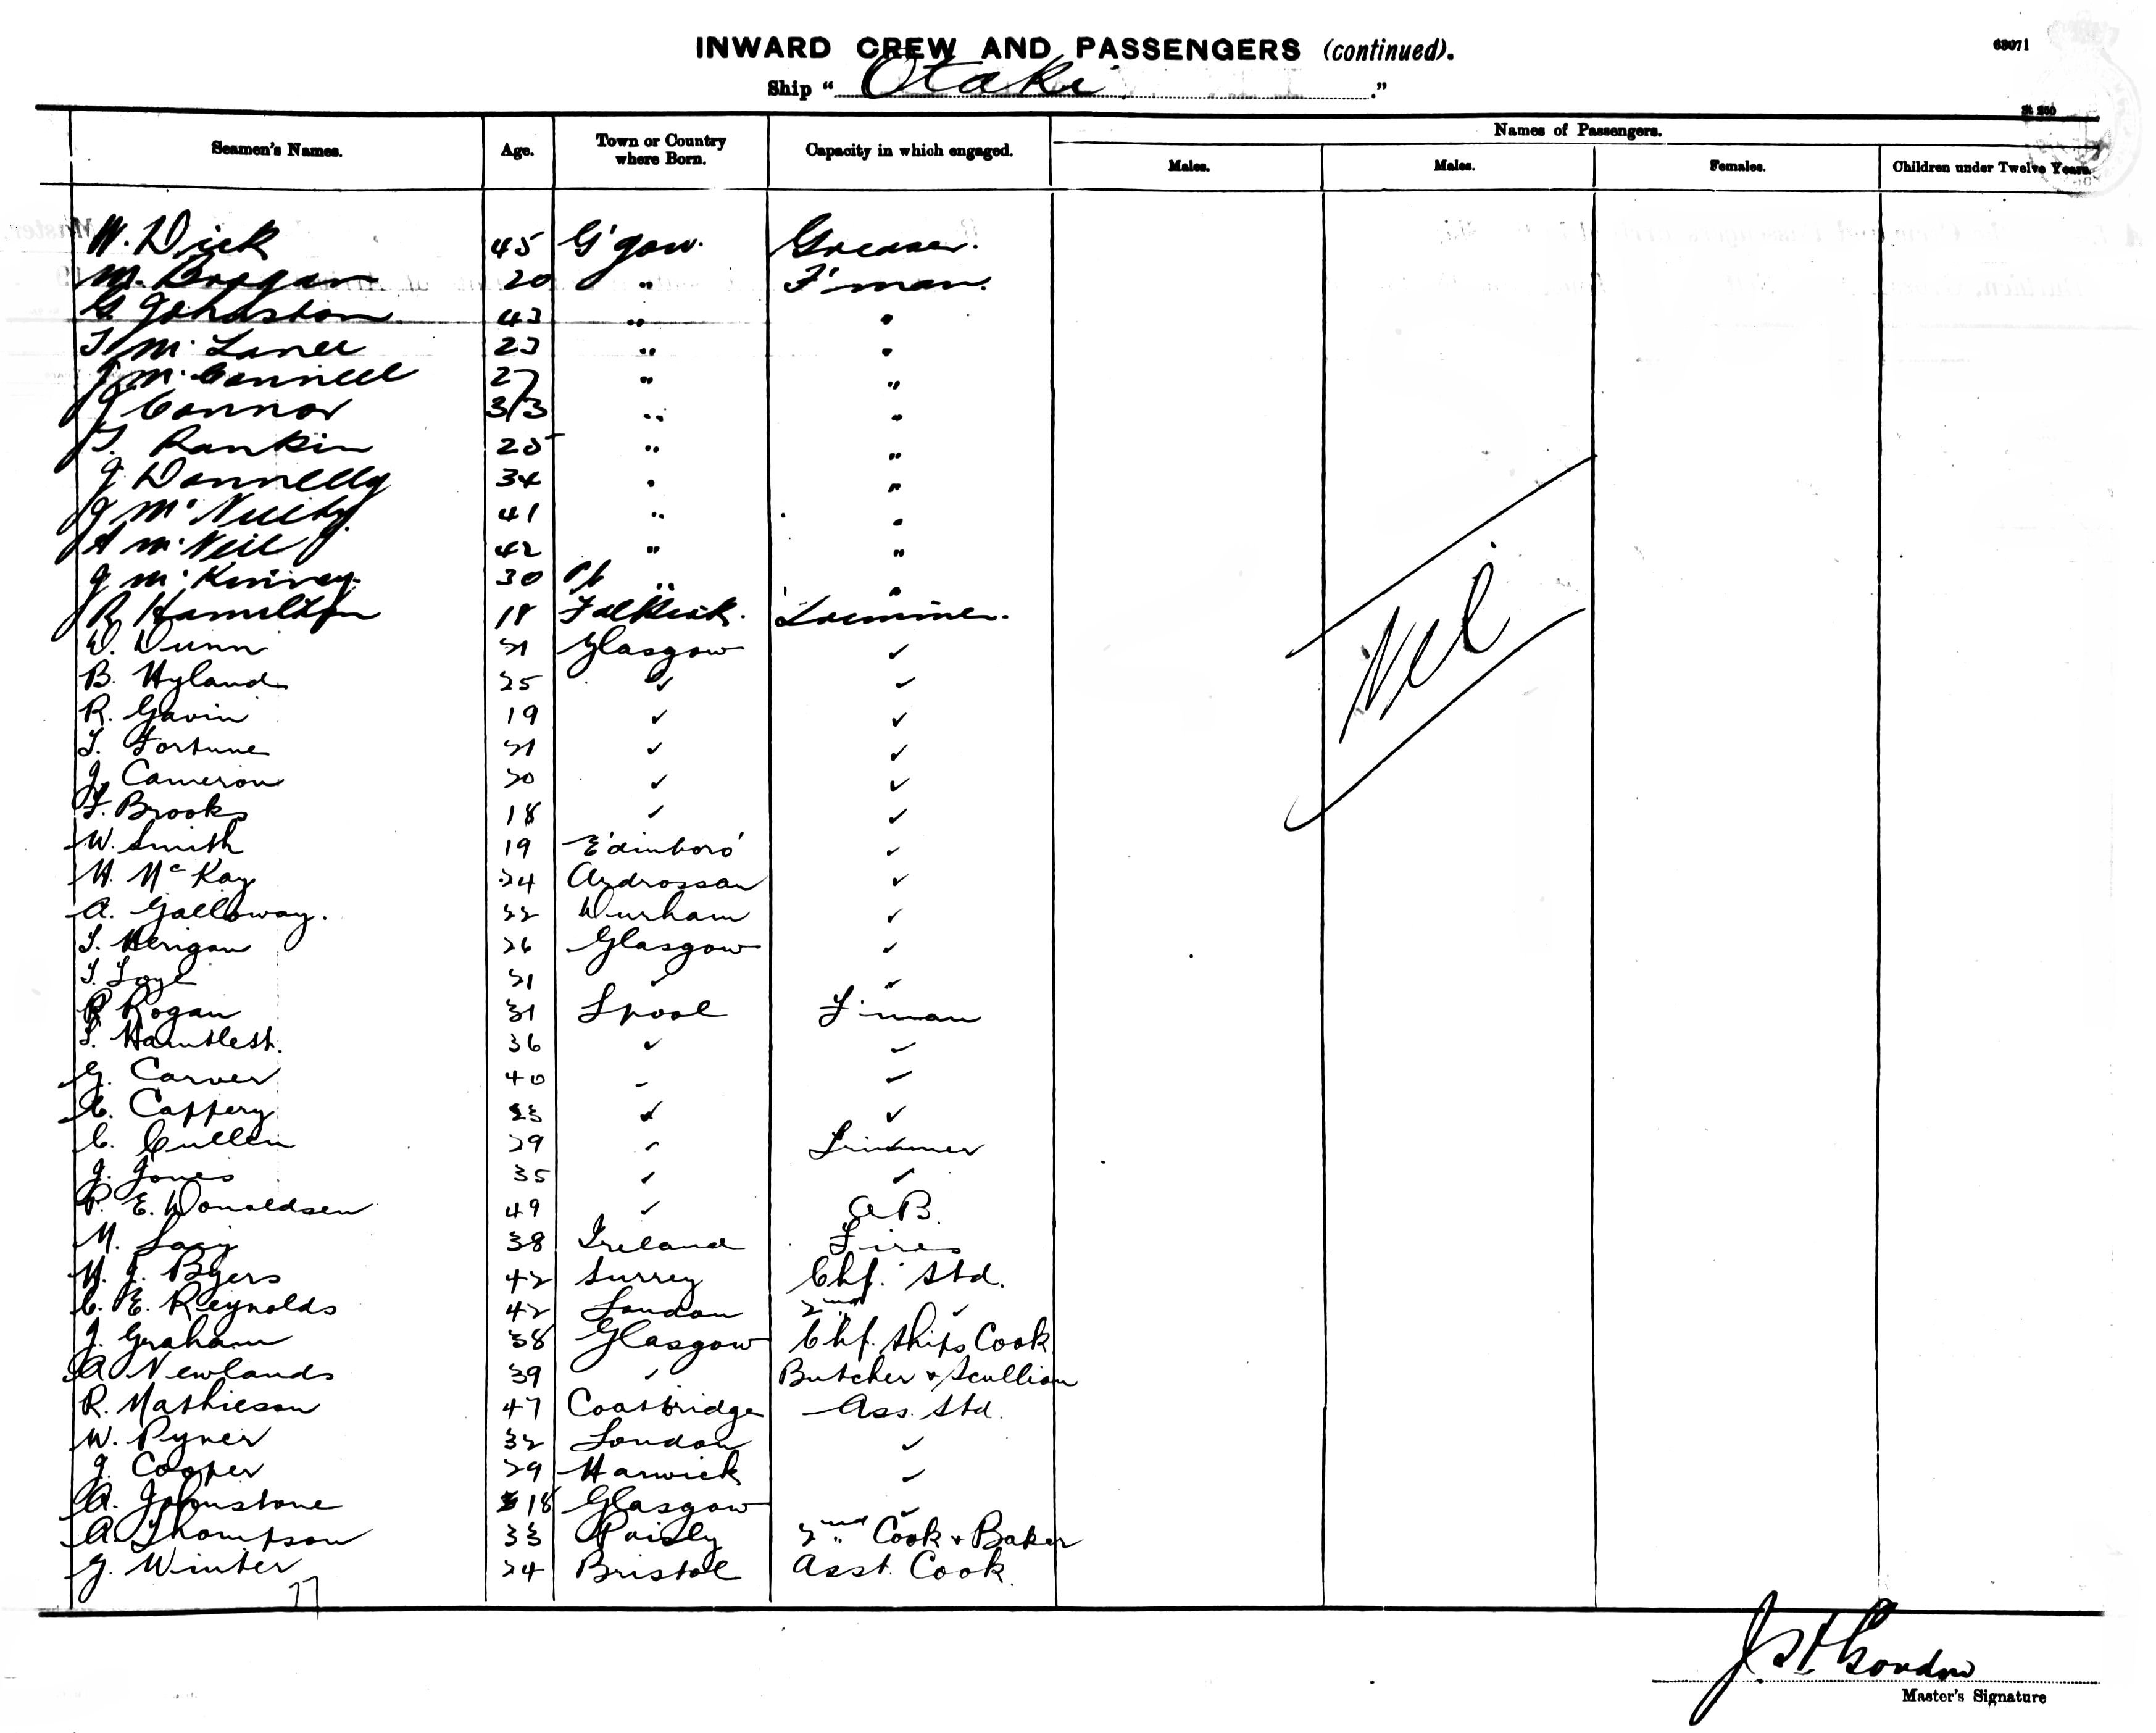 INWARD CREW AND PASSENGERS (continued).
63071
Ship " Otaki ."
Names of Passengers.
Seamen's Names. Age. Town or Country where Born. Capacity in which engaged. Males. Males. Females. Children under Twelve Years.
W. Dick 45 G'gow. Greaser.
M. Brogan 20 " F'man.
G Johnston 43 " "
T. Mc 23 " "
J McConnell 27 " "
J Connor 33 " "
T. Rankin 25 " "
J Donnelly 34 " "
J Mc 41 " "
A McNeil 42 " "
J McKinney 30 " "
R Hamilton 18 Falkirk. Trimmer.
D. Dunn 21 Glasgow ✓
B. Hyland 25 ✓ ✓
R. Gavin 19 ✓ ✓
T. Fortune 21 ✓ ✓
J. Cameron 20 ✓ ✓
F. Brooks 18 ✓ ✓
W. Smith 19 Edinboro' ✓
H. McKay 24 Ardrossan ✓
A. Galloway. 22 Durham ✓
T. Kerigan 26 Glasgow ✓
T. 21 ✓ ✓
P Rogan 31 Lpool F'man
36 ✓ ✓
G. Carver 40 ✓ ✓
Caffery ✓ ✓
C. Cullen 29 ✓ Trimmer
J. Jones 35 ✓ ✓
P. E. Donaldsen 49 ✓ A B.
M. 38 Ireland Fires
H. Byers 42 Surrey Chf. Std.
C. E. Reynolds 42 London 2nd ✓
J. Graham 38 Glasgow Chf. Ships Cook
A Newlands 39 ✓ Butcher & Scullion
R. Mathieson 47 Coatbridge Ass. Std.
W. Pyner 32 London ✓
J. Cooper 29 Harwick ✓
A. Johnstone 18 Glasgow ✓
A. Thompson 33 Paisly 2nd Cook & Baker
G. Winter 24 Bristol Asst. Cook.
77
Nil
Master's Signature